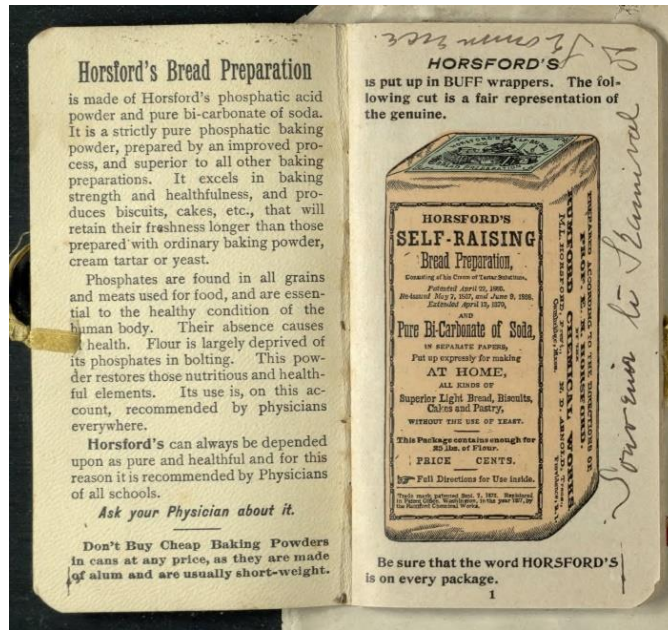 Horsford's Bread Preparation
is made of Horsford's phosphatic acid
powder and pure bi-carbonate of soda.
It is a strictly pure phosphatic baking
powder, prepared by an improved pro-
cess, and superior to all other baking
preparations. It excels in baking
strength and healthfulness, and pro-
duces biscuits, cakes, etc., that will
retain their freshness longer than those
prepared with ordinary baking powder,
cream tartar or yeast.
Phosphates are found in all grains
and meats used for food, and are essen-
tial to the healthy condition of the
human body. Their absence causes
health. Flour is largely deprived of
its phosphates in bolting. This pow-
der restores those nutritious and health-
ful elements. Its use is, on this ac-
count, recommended by physicians
everywhere.
Horsford's can always be depended
upon as pure and healthful and for this
reason it is recommended by Physicians
of all schools.
Ask your Physician about it.
Don't Buy Cheap Baking Powders
in cans at any price, as they are made
of alum and are usually short-weight.
HORSFORD'S
is put up in BUFF wrappers. The fol-
lowing cut is a fair representation of
the genuine.
HORSFORD'S
SELF-RAISING
Bread Preparation,
Consisting of his Cream of Tartar Substitute,
Patented April 22, 1856.
Re-issued May 7, 1867, and June 9, 1868.
Extended April 13, 1870,
AND
Pure Bi-Carbonate of Soda,
IN SEPARATE PAPERS,
Put up expressly for making
AT HOME,
ALL KINDS OF
Superior Light Bread, Biscuits,
Cakes and Pastry,
WITHOUT THE USE OF YEAST.
This Package contains enough for
25 lbs. of Flour.
PRICE CENTS.
Full Directions for Use inside.
Trade mark patented
in Patent Office, Washington, in the year 1877, by
the Rumford Chemical Works.
PREPARED ACCORDING TO THE DIRECTIONS OF
PROF. E. N. HORSFORD.
RUMFORD CHEMICAL WORKS
M. L. HORSFORD, Pres't, E. D. ARNOLD, Treas.
Cambridge, Mass. Providence, R. I.
Souvenir to
Be sure that the word HORSFORD'S
is on every package.
1